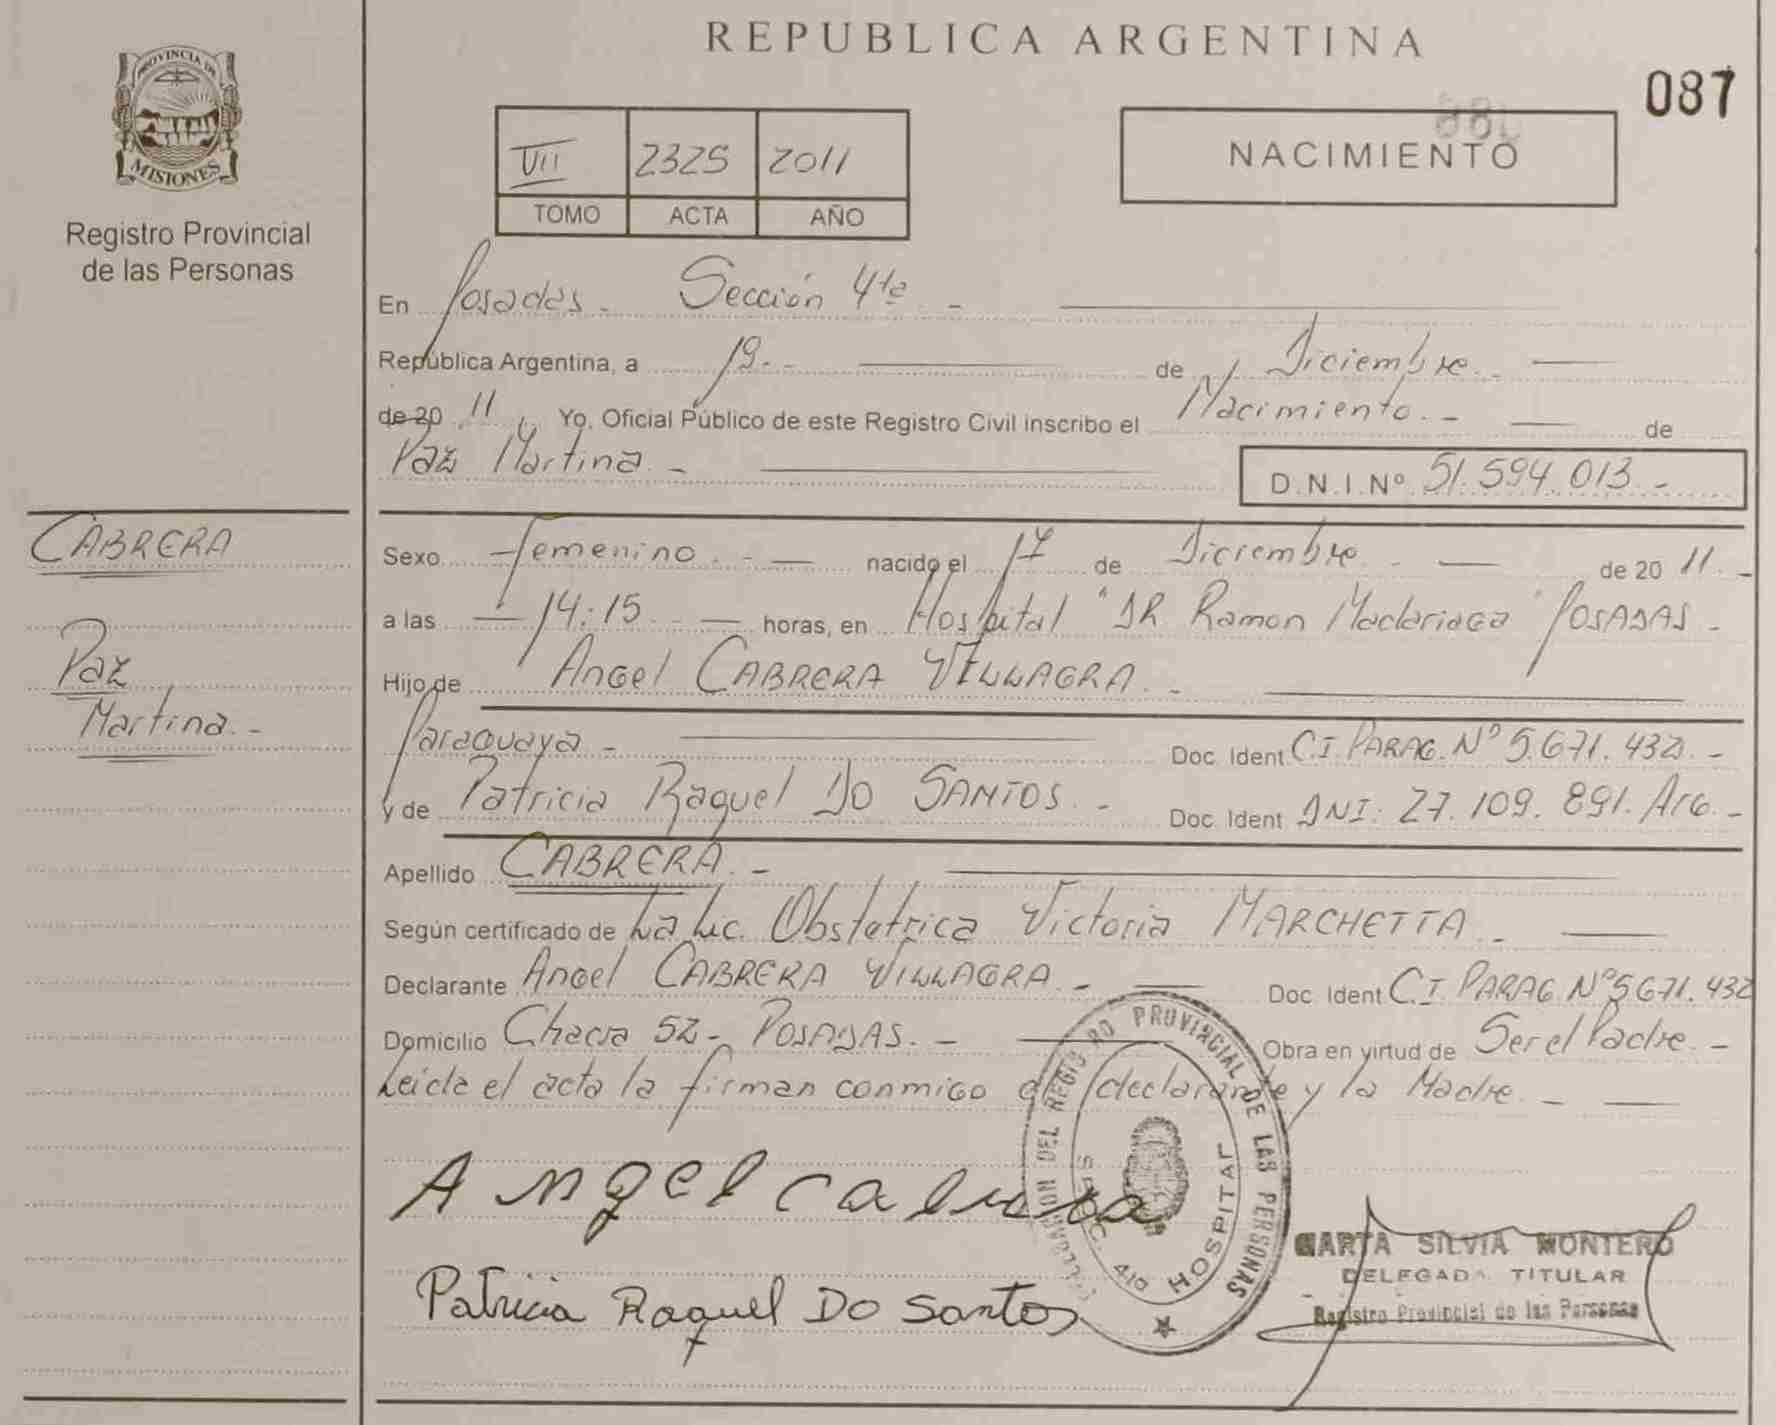 REPUBLICA ARGENTINA
087
PROVINCIA DE
MISIONES
Registro Provincial
de las Personas
VII 2325 2011
TOMO ACTA AÑO
NACIMIENTO
En Posadas.- Sección 4ta -
República Argentina, a 19.- de Diciembre.-
de 20 11, Yo, Oficial Público de este Registro Civil inscribo el Nacimiento.- de
Paz Martina.-
D.N.I.Nº 51.594.013.-
CABRERA
Paz
Martina.-
Sexo Femenino.- nacido el 17 de Diciembre.- de 20 11.-
a las 14:15 horas, en Hospital "DR Ramon Madariaga" POSADAS.-
Hijo de Angel CABRERA VILLAGRA.-
Paraguaya - Doc. Ident C.I. PARAG. Nº 5.671.432.-
y de Patricia Raquel DO SANTOS.- Doc. Ident DNI: 27.109.891. Arg.-
Apellido CABRERA.-
Según certificado de La Lic. Obstetrica Victoria MARCHETTA.-
Declarante Angel CABRERA VILLAGRA.- Doc. Ident C.I. PARAG Nº 5671.432
Domicilio Chacra 52- POSADAS.- Obra en virtud de Ser el Padre.-
Leida el acta la firman conmigo el declarante y la Madre.-
Angel Cabrera
Patricia Raquel DO Santos
DEL REGISTRO PROVINCIAL DE LAS PERSONAS
SECC. 4ta HOSPITAL
MARTA SILVIA MONTERO
DELEGADA TITULAR
Registro Provincial de las Personas